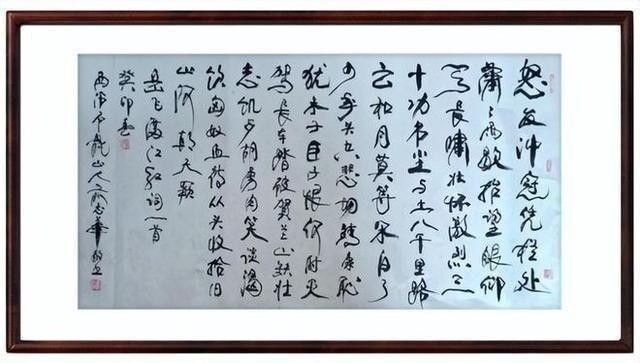 怒发冲冠凭栏处
潇潇雨歇抬望眼仰
天长啸壮怀激烈三
十功名尘与土八千里路
云和月莫等闲白了
少年头空悲切靖康耻
犹未雪臣子恨何时灭
驾长车踏破贺兰山缺壮
志饥餐胡虏肉笑谈渴
饮匈奴血待从头收拾旧
山河朝天阙
岳飞满江红词一首
癸卯春
山人